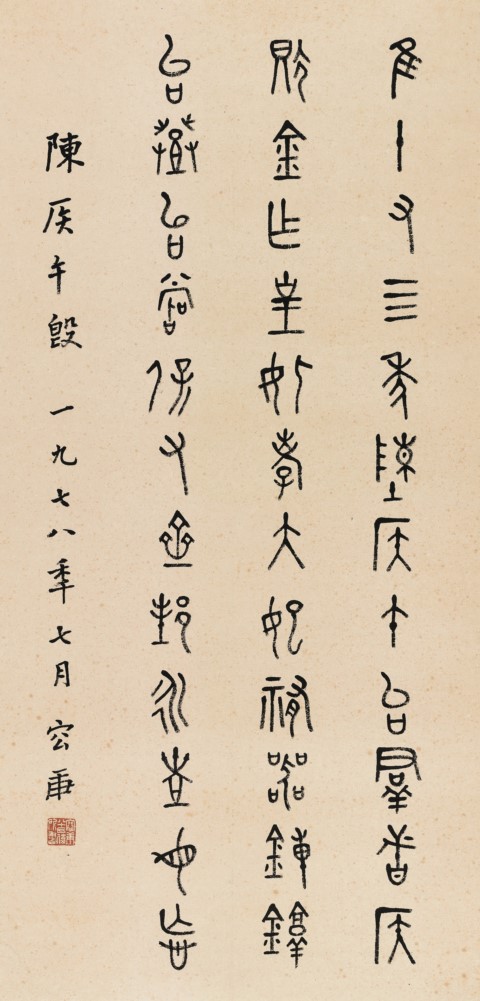 隹十又四年陳侯午台群者侯
獻金乍皇妣孝大妃祭器錞
台登台嘗保又齊邦永世毋忘
陳侯午𣪘 一九七八年七月 容庚